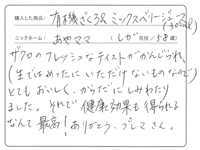 購入した商品: 有機ざくろ&ミックスベリージュース(300ml)
ニックネーム: あやママ (しが 在住 / 58歳)
ザクロのフレッシュなテイストがかんじられ、
(生ではめったにいただけないものなので)
とてもおいしく、からだにしみわたり
ました。それで健康効果も得られる
なんて最高! ありがとう、プレマさん。